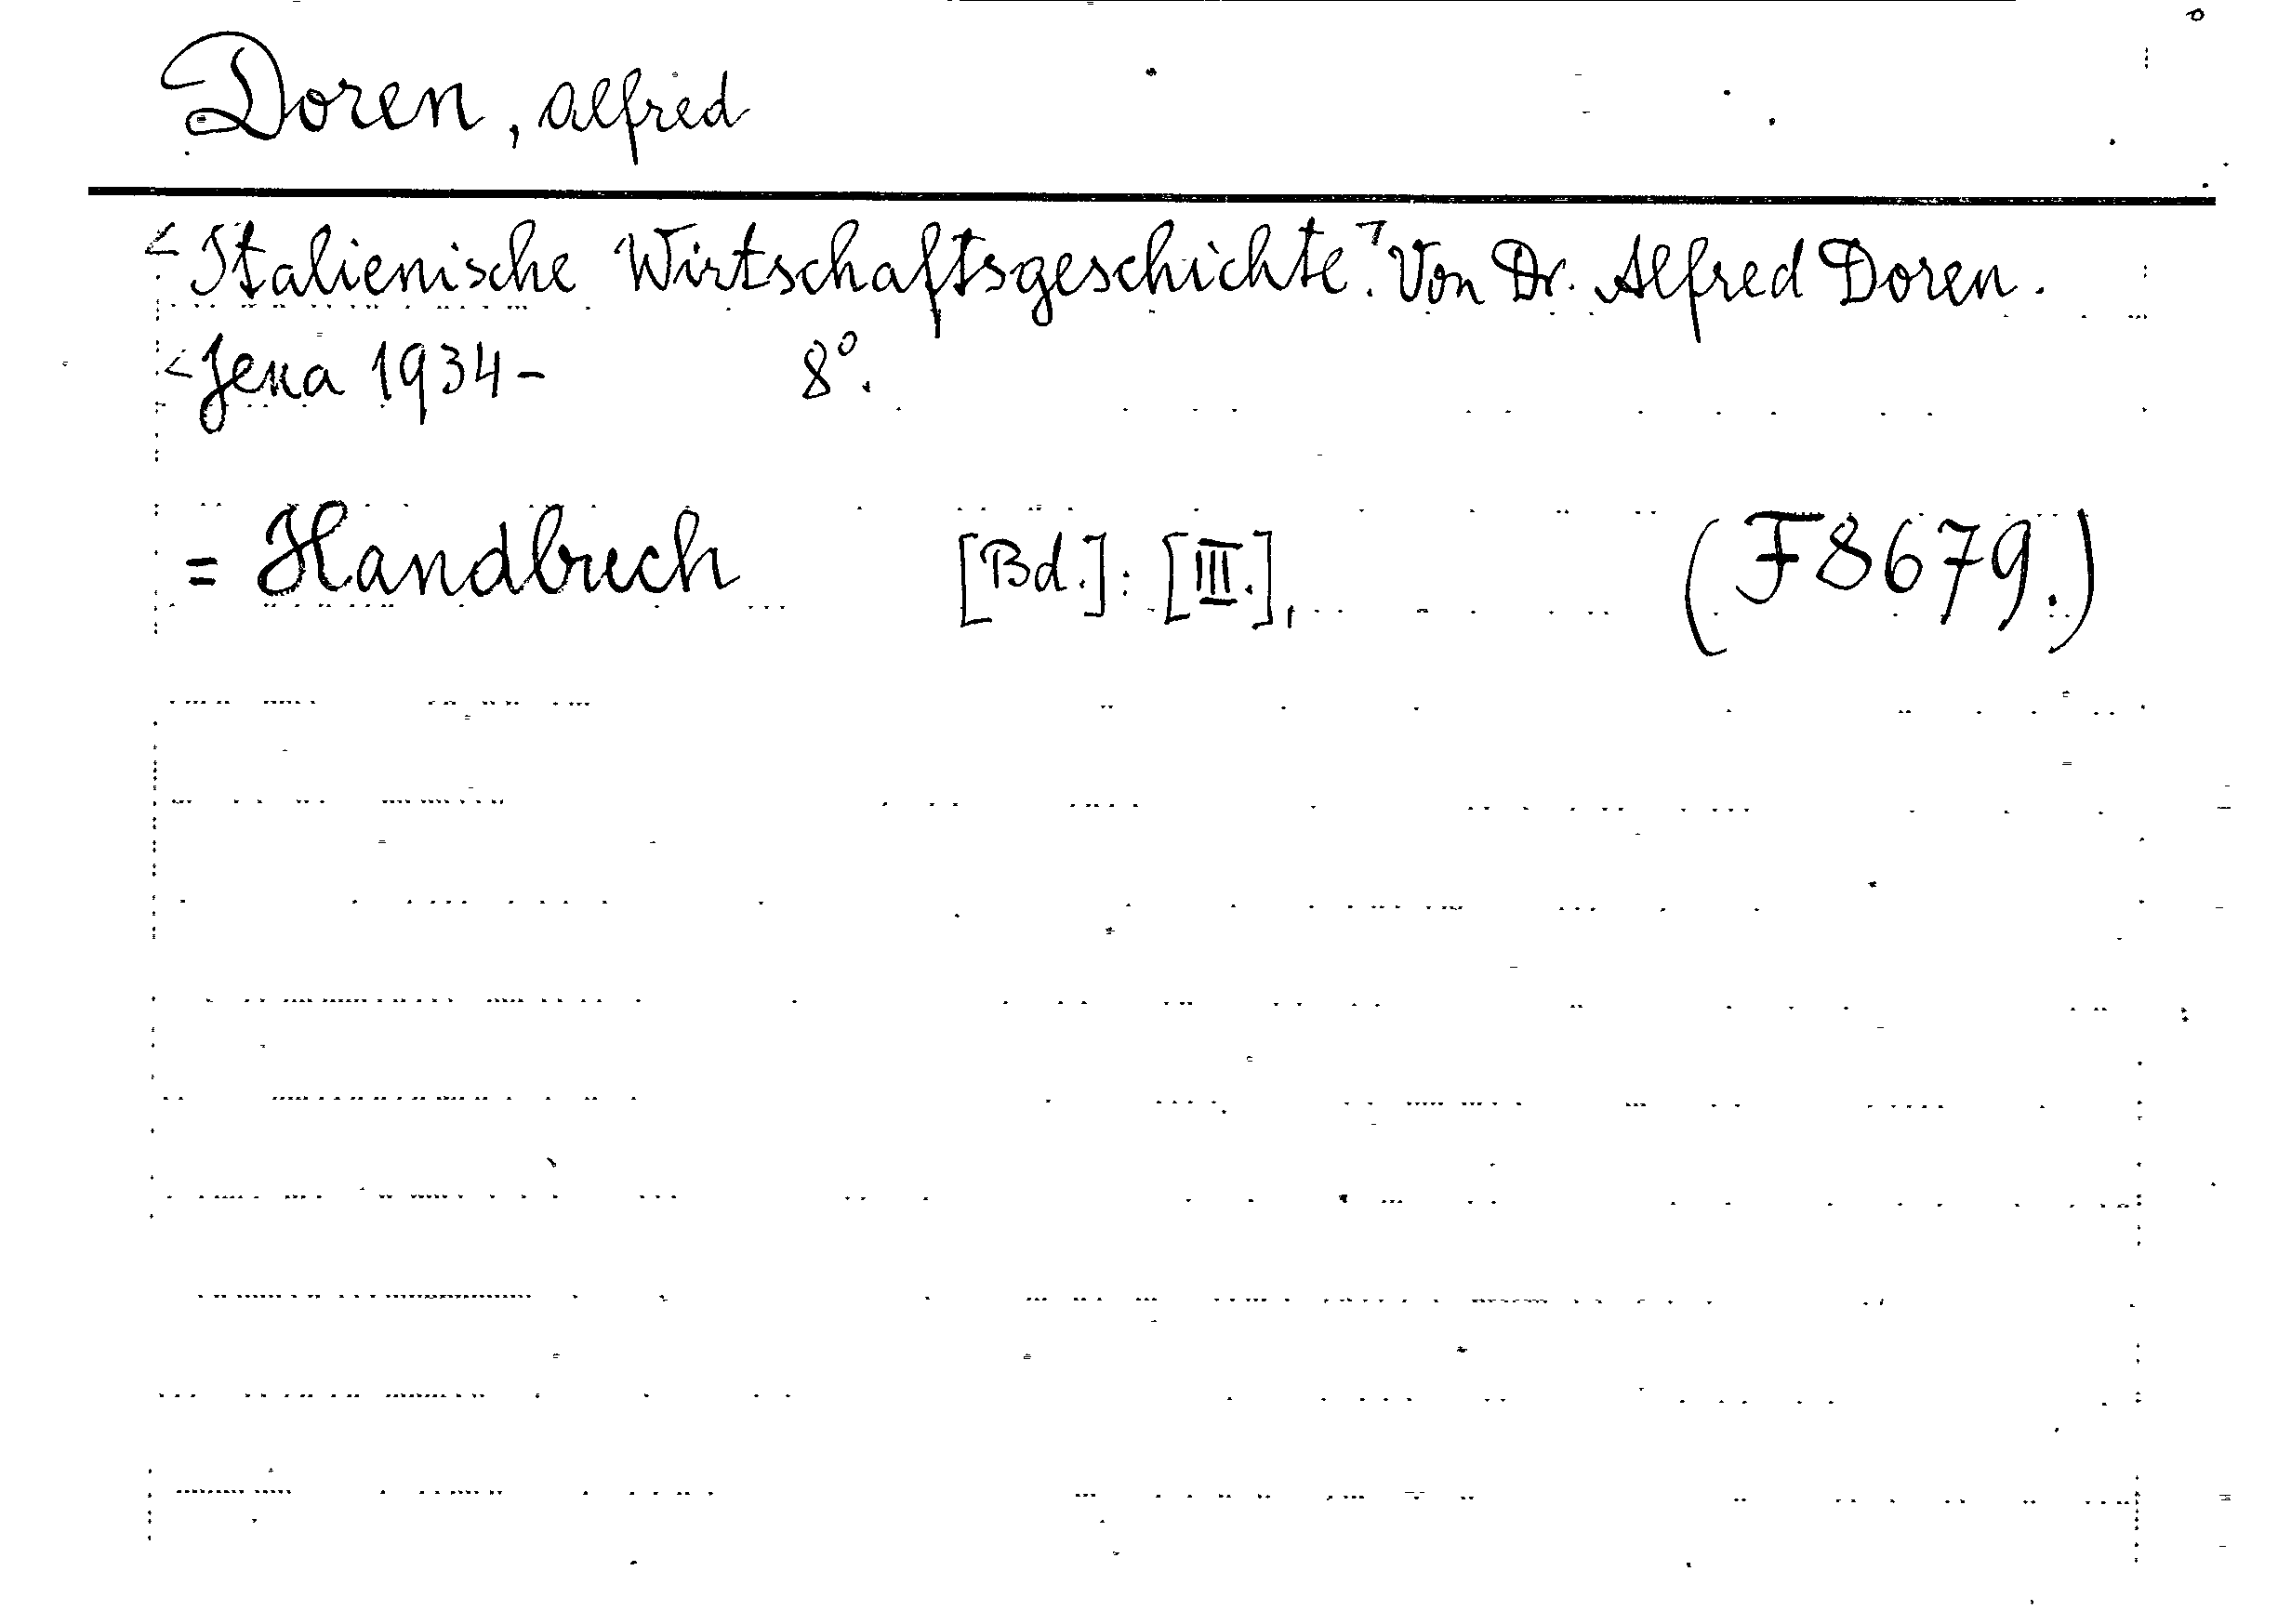 Doren, Alfred
<Italienische Wirtschaftsgeschichte.> Von Dr. Alfred Doren.
<Jena 1934- 8°.
= Handbuch [Bd.]: [III.], (F8679.)